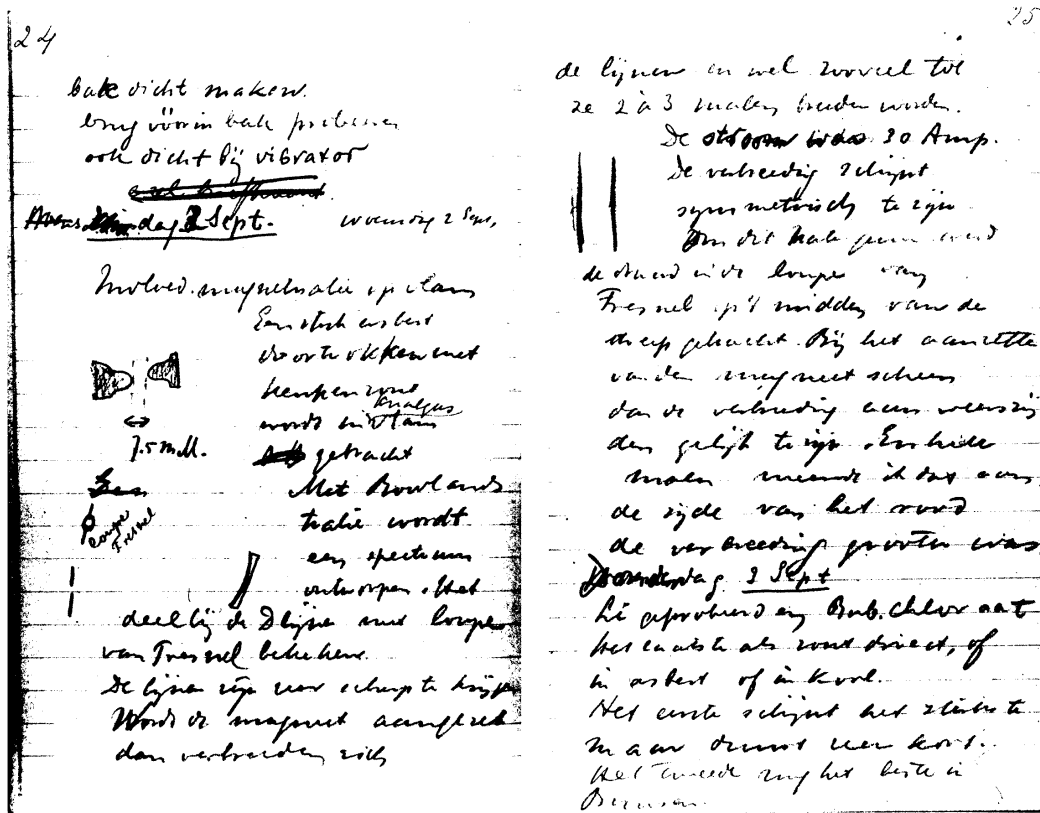 24
bak dicht maken.
brug vóór in bak proberen
ook dicht bij vibrator
dag 2 Sept. woensdag 2 Sept.
Invloed magnetisatie op vlam
Een stuk asbest
doortrokken met
keukenzout
analyse
wordt in vlam
gebracht
7.5 m.M.
Met Rowlands
tralie wordt
loupe
Fresnel
een spectrum
ontworpen. Het
deel bij de D lijn met loupe
van Fresnel bekeken.
De lijnen zijn zeer scherp te krijgen
Wordt de magneet aangezet
dan verbreeden zich
25
de lijnen en wel zooveel tot
ze 2 à 3 malen breeder worden.
De stroom was 30 Amp.
De verbreeding schijnt
symmetrisch te zijn
Om dit
de draad in de loupe van
Fresnel op 't midden van de
streep gebracht. Bij het aanzetten
van den magneet scheen
dan de verbreeding aan weerszij
den gelijk te zijn. Enkele
malen meende ik dat aan
de zijde van het rood
de verbreeding grooter was
Donderdag 3 Sept
Li geprobeerd en Bab. Chloraat
Het laatste als zout direct, of
in asbest of in kool.
Het eerste schijnt het sterkste
maar duurt zeer kort.
Het tweede nog het beste in
Bunsen.